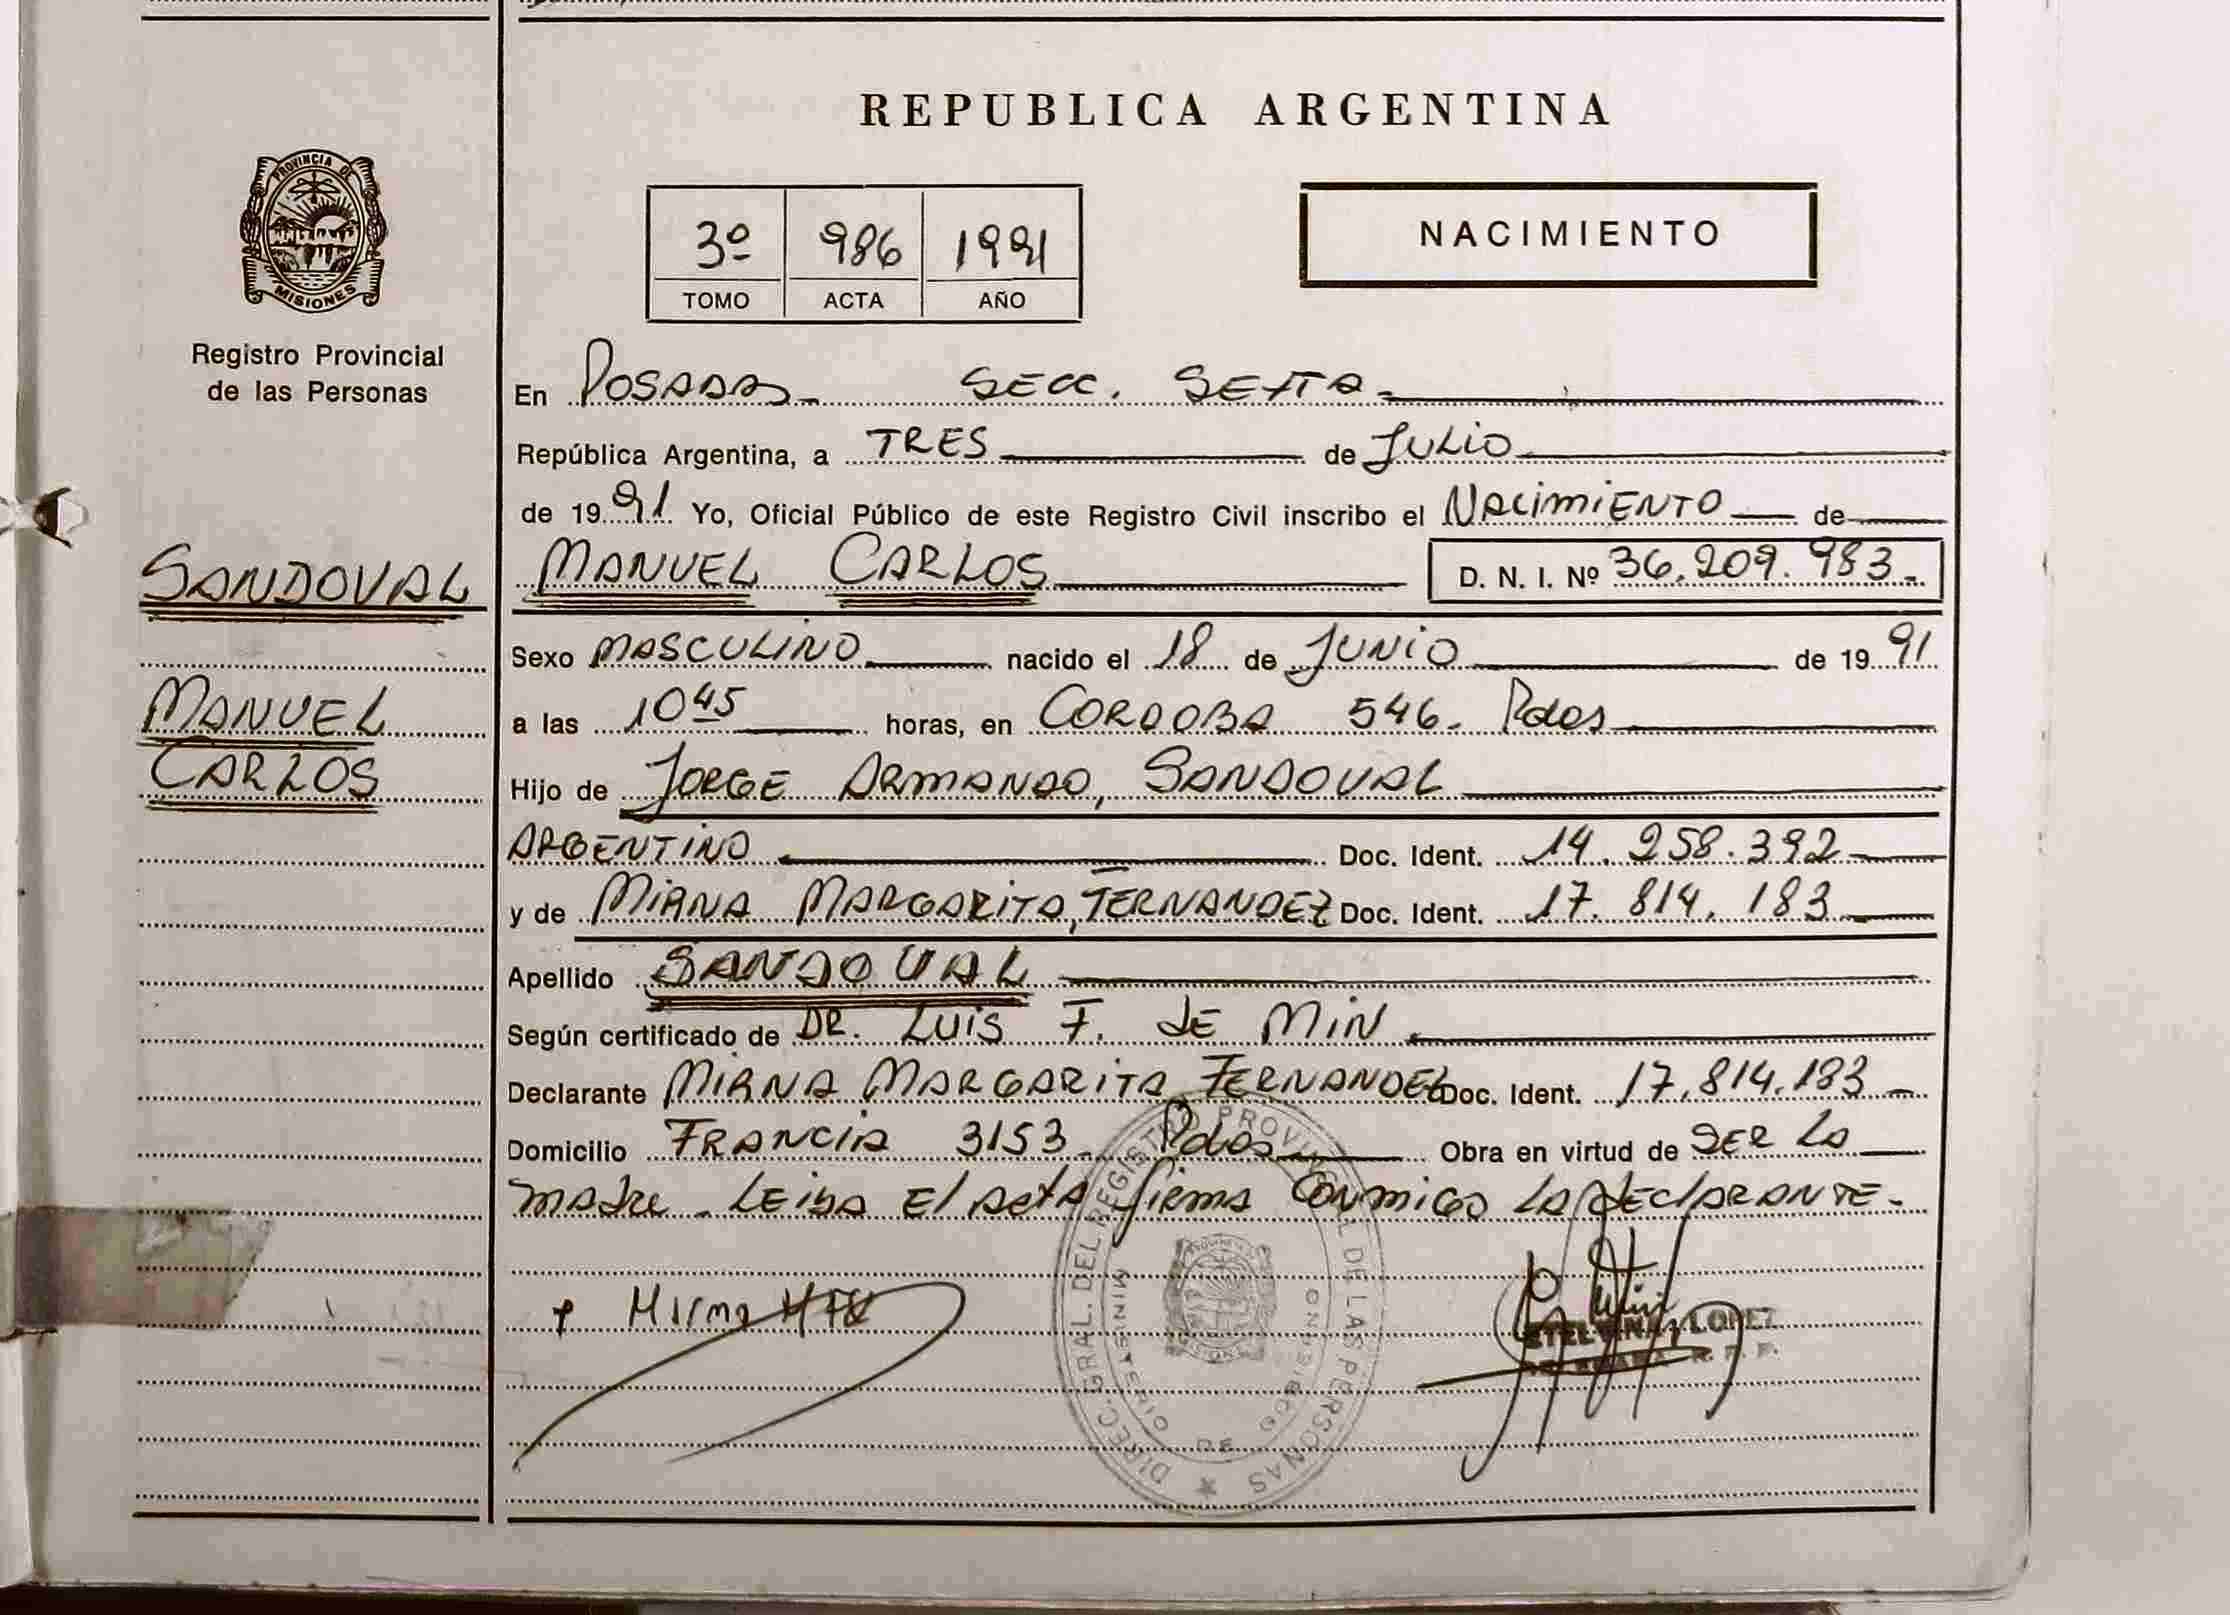 REPUBLICA ARGENTINA
PROVINCIA DE
MISIONES
Registro Provincial
de las Personas
3º 986 1991
TOMO ACTA AÑO
NACIMIENTO
En Posadas - Secc. Sexta -
República Argentina, a TRES de Julio
de 1991 Yo, Oficial Público de este Registro Civil inscribo el Nacimiento de
SANDOVAL
MANUEL CARLOS D. N. I. Nº 36.209.983-
Sexo MASCULINO nacido el 18 de Junio de 1991
MANUEL
CARLOS
a las 10 45 horas, en CORDOBA 546- Pdas
Hijo de Jorge Armando, Sandoval
ARGENTINO Doc. Ident. 14.258.392
y de Mirna Margarita, Fernandez Doc. Ident. 17.814.183
Apellido SANDOVAL
Según certificado de DR. Luis F. de Min.
Declarante Mirna Margarita Fernandez Doc. Ident. 17.814.183
Domicilio Francia 3153- Pdas Obra en virtud de ser la
madre - Leida El acta firma conmigo la declarante-
DIREC. GRAL. DEL REGISTRO PROVINCIAL DE LAS PERSONAS
MINISTERIO DE GOBIERNO
Mirna
LOPEZ